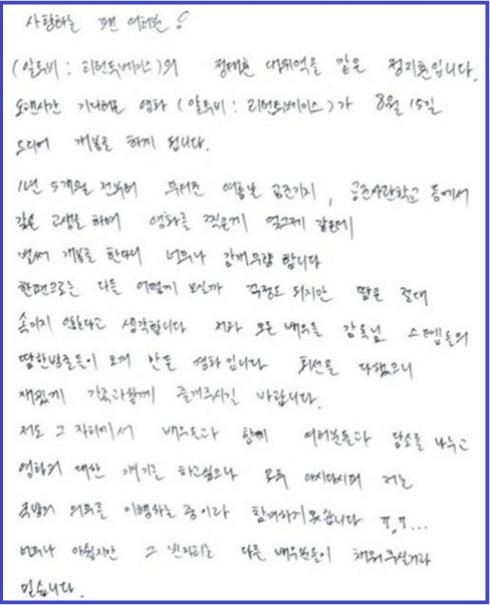 사랑하는 팬 여러분!
(알투비 : 리턴투베이스)의 정태훈 대위역을 맡은 정지훈입니다.
오랜시간 기다려온 영화 (알투비 : 리턴투베이스)가 8월 15일
드디어 개봉을 하게 됩니다.
1년 5개월 전부터 무더운 여름날 공군기지, 공군사관학교 등에서
갖은 고생을 하며 영화를 찍은게 엊그제 같은데
벌써 개봉을 한다니 너무나 감개무량 합니다
한편으로는 다들 어떻게 보실까 걱정도 되지만 땀은 절대
속이지 않는다고 생각합니다 저와 모든 배우들 감독님 스텝들의
땀한방울들이 모여 만든 영화입니다 최선을 다했으니
재밌게 가족과함께 즐겨주시길 바랍니다.
저도 그 자리에서 배우들과 함께 여러분들과 담소를 나누고
영화의 대한 얘기를 하고싶으나 모두 아시다시피 저는
국방의 의무를 이행하는 중이라 함께하지못합니다 ㅠ.ㅠ...
너무나 아쉽지만 그 빈자리는 다른 배우분들이 채워주실거라
믿습니다.